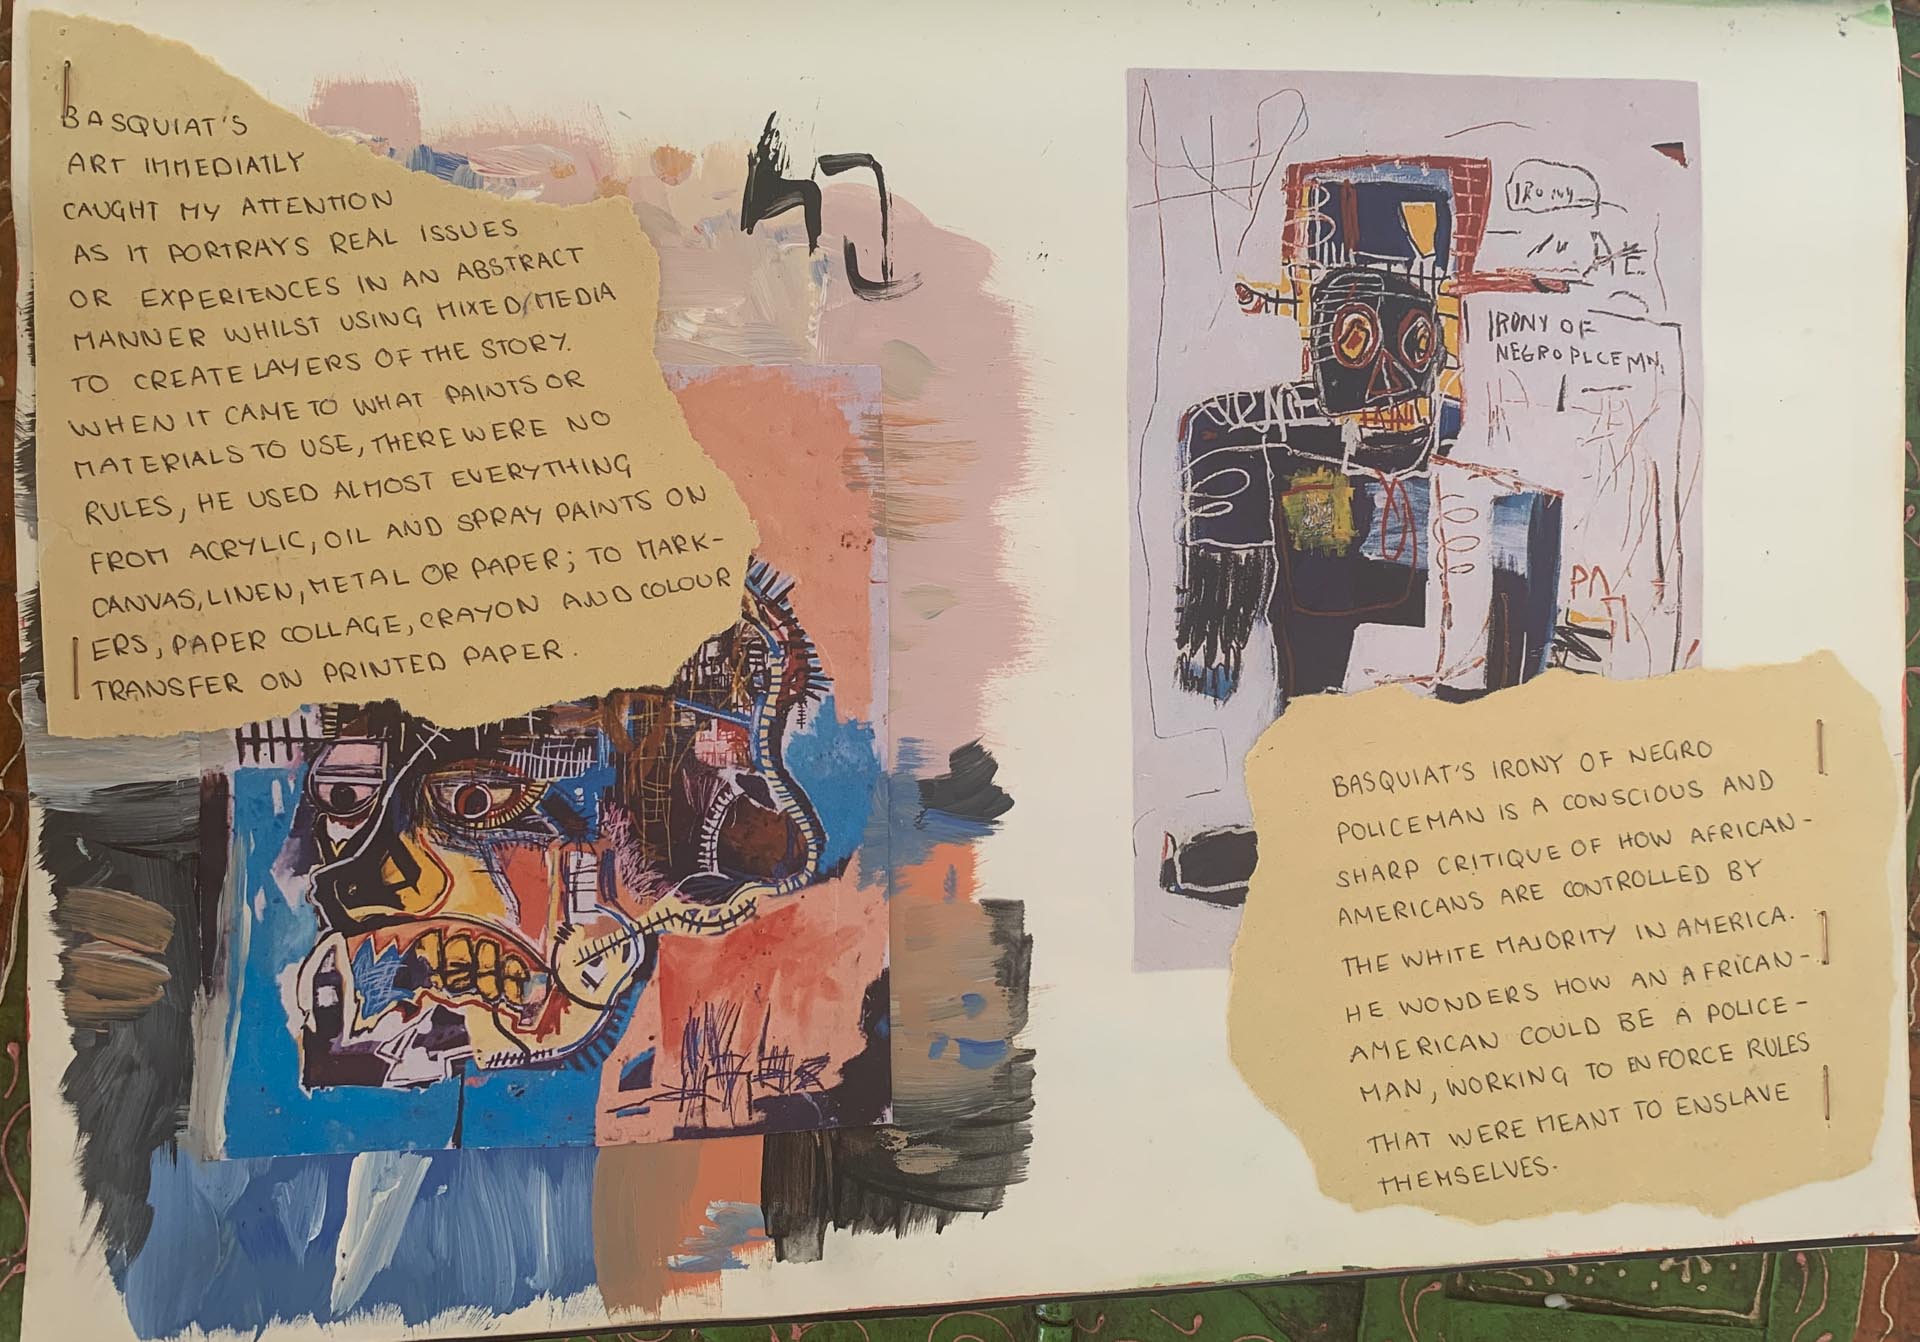 BASQUIAT'S
ART IMMEDIATLY
CAUGHT MY ATTENTION
AS IT PORTRAYS REAL ISSUES
OR EXPERIENCES IN AN ABSTRACT
MANNER WHILST USING MIXED/MEDIA
TO CREATE LAYERS OF THE STORY.
WHEN IT CAME TO WHAT PAINTS OR
MATERIALS TO USE, THERE WERE NO
RULES, HE USED ALMOST EVERYTHING
FROM ACRYLIC, OIL AND SPRAY PAINTS ON
CANVAS, LINEN, METAL OR PAPER; TO MARK-
ERS, PAPER COLLAGE, CRAYON AND COLOUR
TRANSFER ON PRINTED PAPER.
IRONY
IRONY OF
NEGRO PLCEMN.
PA
BASQUIAT'S IRONY OF NEGRO
POLICEMAN IS A CONSCIOUS AND
SHARP CRITIQUE OF HOW AFRICAN-
AMERICANS ARE CONTROLLED BY
THE WHITE MAJORITY IN AMERICA.
HE WONDERS HOW AN AFRICAN-
AMERICAN COULD BE A POLICE-
MAN, WORKING TO ENFORCE RULES
THAT WERE MEANT TO ENSLAVE
THEMSELVES.